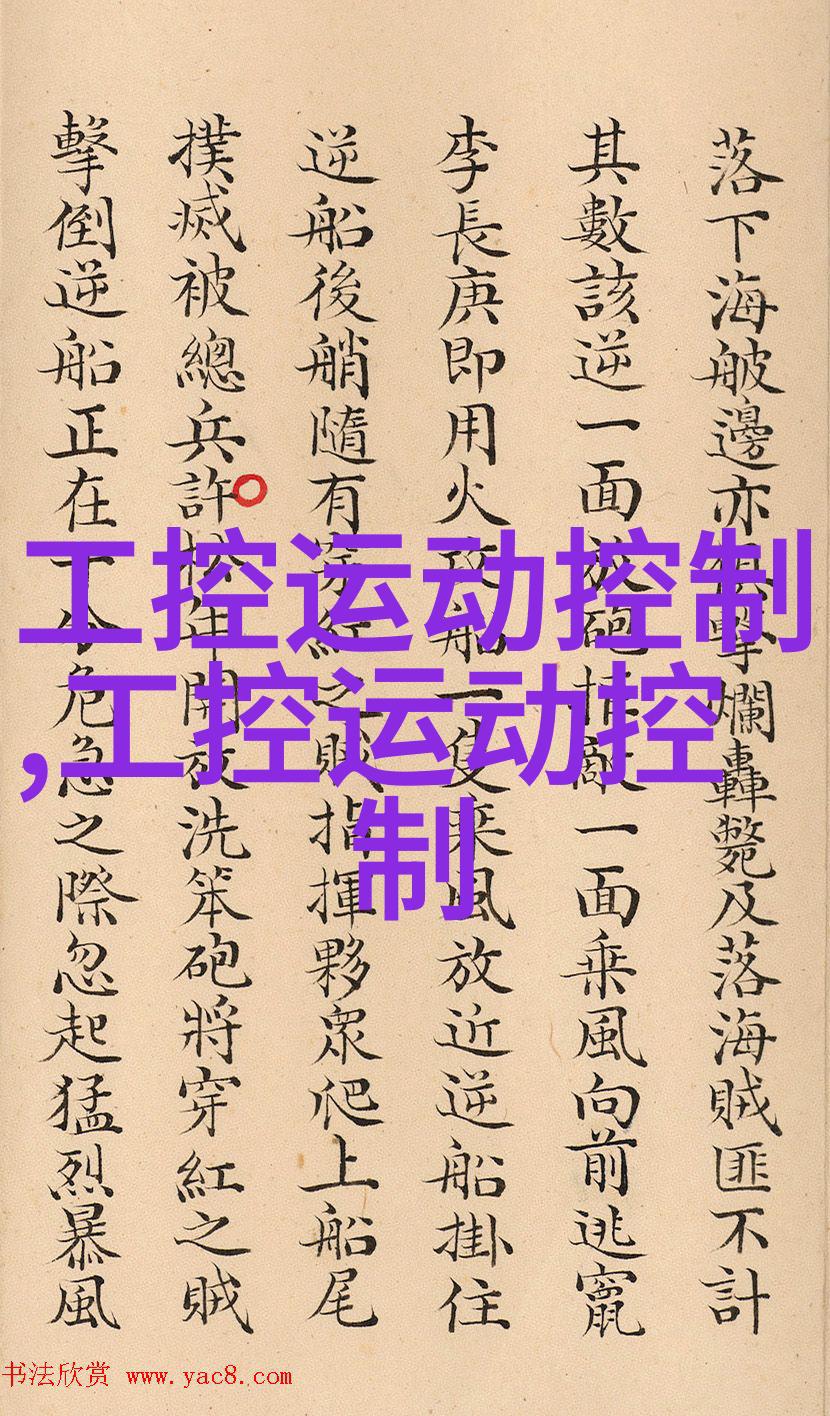 落下海舨邊亦俱擊爛轟斃及落海賊匪不計
其數該逆一面放砲拒敵一面乗風向前逃竄
李長庚即用火攻船一隻乘風放近逆船掛住
逆船後艄隨有穿紅之賊指揮夥眾爬上船尾
撲滅被總兵許松年開放洗笨砲將穿紅之賊
擊倒逆船正在十分危急之際忽起猛烈暴風
工控运动控制
,工控运动控
制
书法欣赏 www.yac8.com